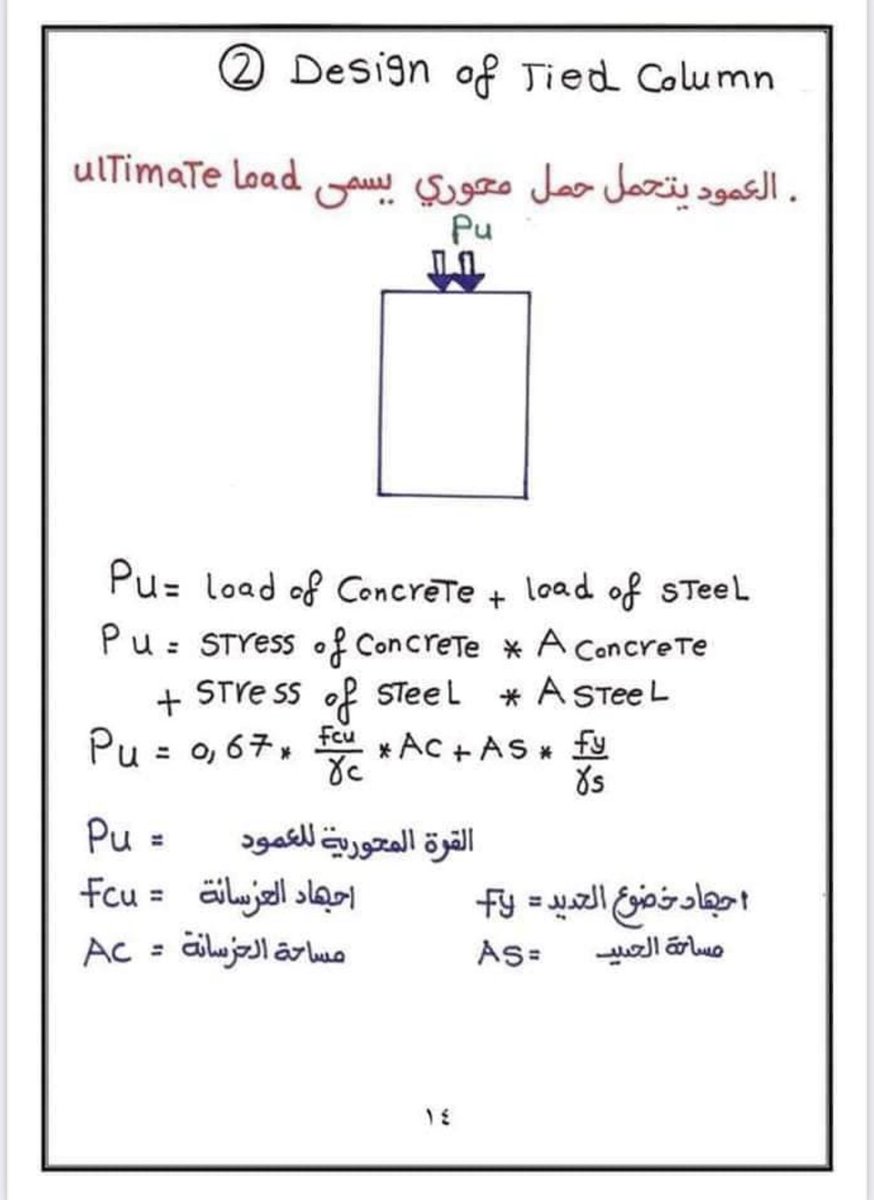 ② Design of Tied Column
. العمود يتحمل حمل محوري يسمى ulTimaTe load
Pu
Pu = load of ConcreTe + load of sTeeL
Pu = sTress of ConcreTe * A ConcreTe
+ sTress of sTeeL * A sTeeL
Pu = 0,67 * fcu/γc * AC + AS * fy/γs
Pu = القوة المحورية للعمود
fcu = اجهاد الخرسانة fy = اجهاد خضوع الحديد
AC = مساحة الخرسانة AS = مساحة الحديد
١٤